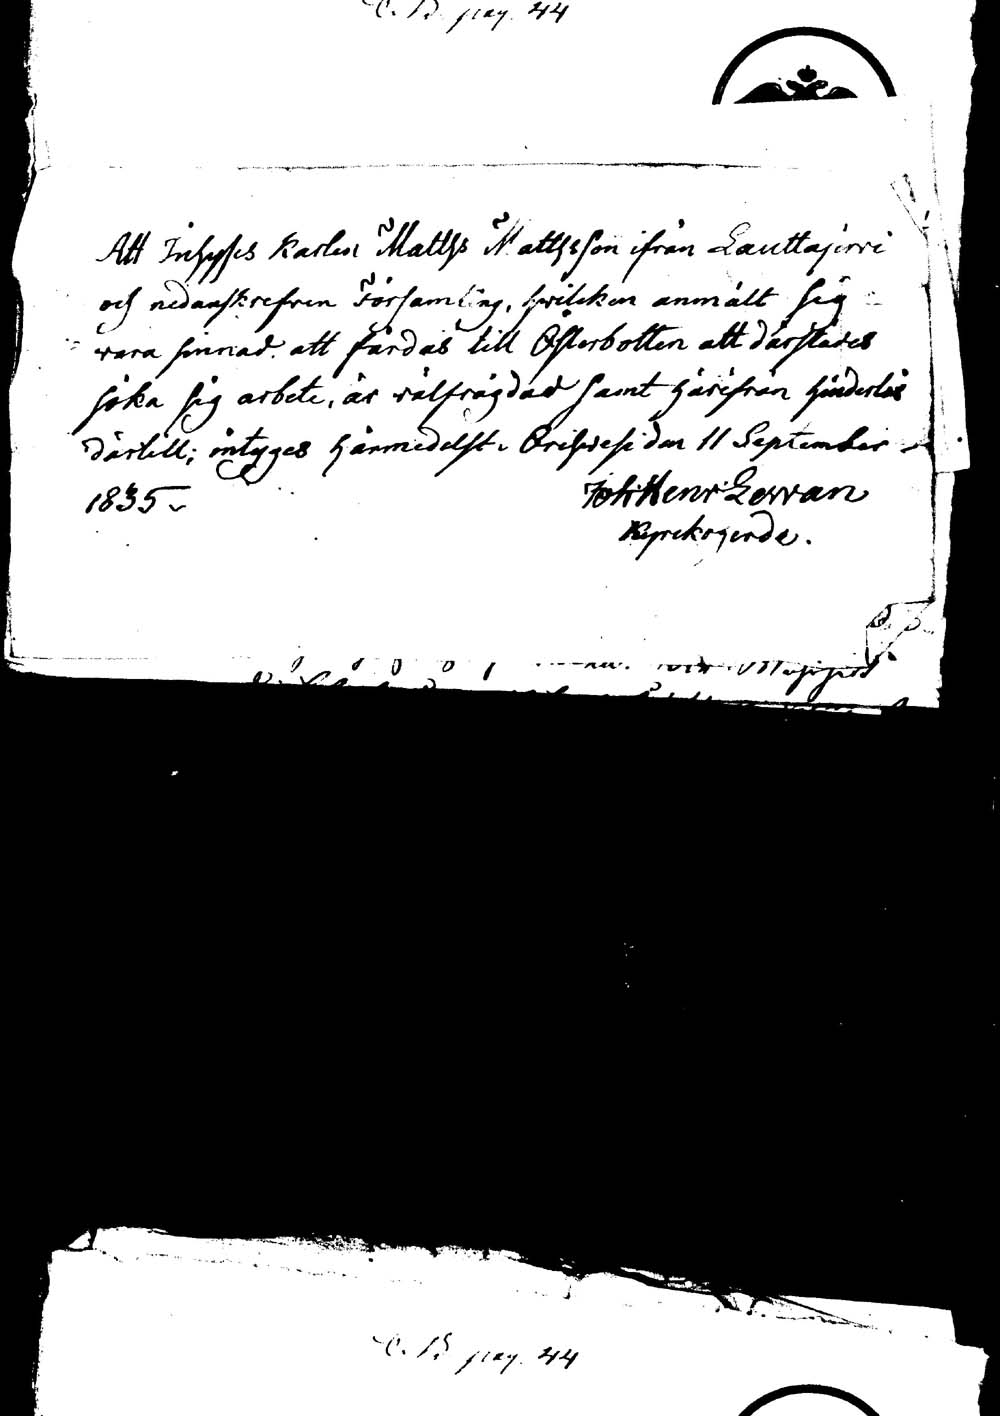 C. B. pag. 44
Att Inhyses karlen Matths Mattsson ifrån Lauttajärvi
och nedanskrefven Församling, hvilcken anmält sig
vara sinnad att färdas till Österbotten att därstädes
söka sig arbete, är välfrägdad samt härifrån hinderlös
därtill; intyges härmedelst. Orihvesi den 11 September
1835.
Joh. Henr.
Kyrkoherde.
C. B. pag. 44